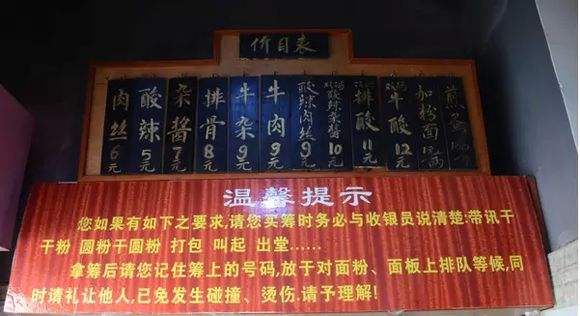 价目表
肉丝 6元
酸辣 5元
杂酱 7元
排骨 8元
牛杂 9元
牛肉 9元
酸辣肉丝 9元
酸辣杂酱 10元
排酸 11元
牛酸 12元
加粉面
煎蛋
温馨提示
您如果有如下之要求,请您买筹时务必与收银员说清楚:带讯干
干粉 圆粉干圆粉 打包 叫起 出堂......
拿筹后请您记住筹上的号码,放于对面粉、面板上排队等候,同
时请礼让他人,已免发生碰撞、烫伤.请予理解!